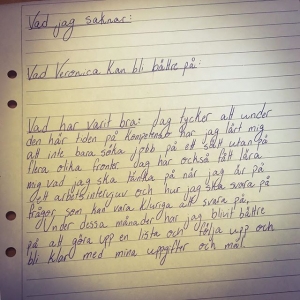 Vad jag saknar:
Vad Veronica kan bli bättre på:
Vad har varit bra: Jag tycker att under
den här tiden på kompetenko har jag lärt mig
att inte bara söka jobb på ett sätt utan på
flera olika fronter. Jag har också fått lära
mig vad jag ska tänka på när jag är på
ett arbetsintervjuv och hur jag ska svara på
frågor som kan vara kluriga att svara på,
Under dessa månader har jag blivit bättre
på att göra upp en lista och följa upp och
bli klar med mina uppgifter och mål